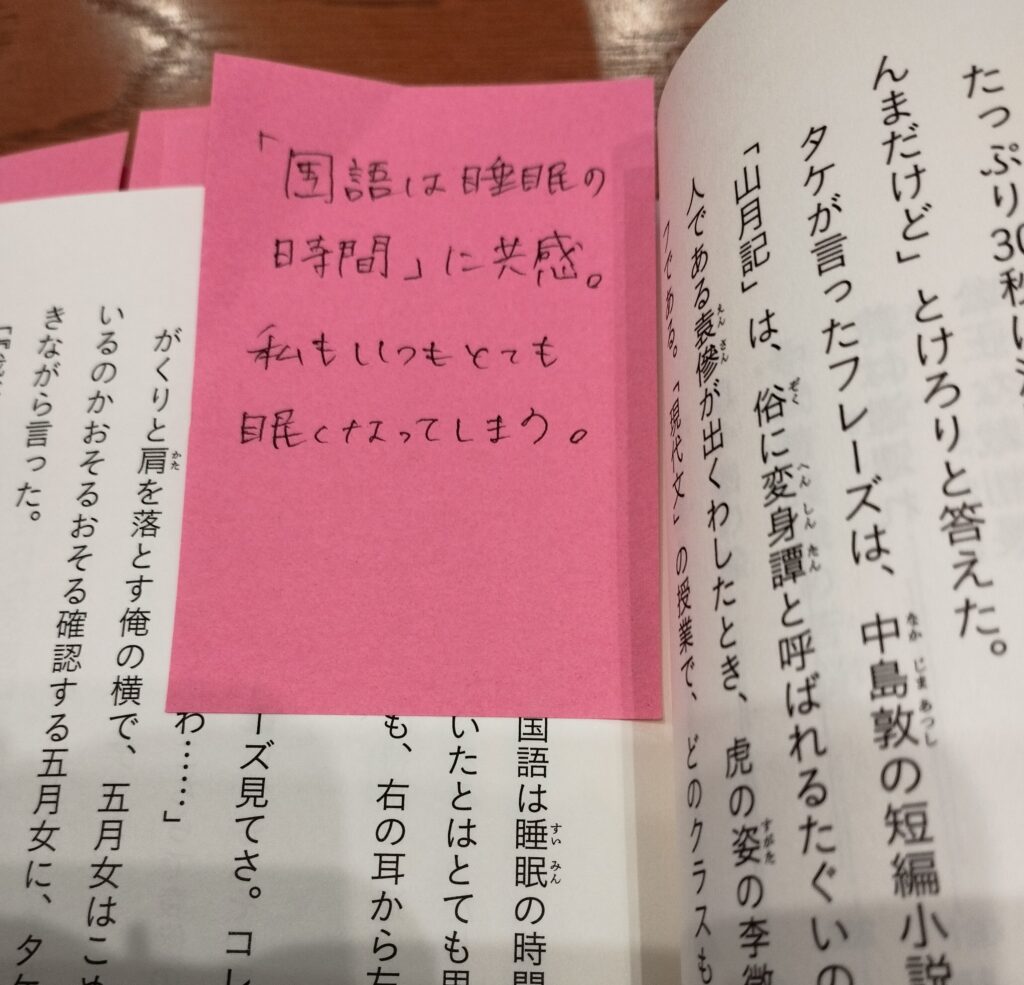 「国語は睡眠の
時間」に共感。
私もいつもとても
眠くなってしまう。
たっぷり30秒
んまだけど」とけろりと答えた。
タケが言ったフレーズは、中島敦の短編小説
「山月記」は、俗に変身譚と呼ばれるたぐいの
人である袁傪が出くわしたとき、虎の姿の李徴
フである。「現代文」の授業で、どのクラスも
国語は睡眠の時間
いたとはとても思
も、右の耳から左
ーズ見てさ。コレ
わ……」
がくりと肩を落とす俺の横で、五月女はこめ
いるのかおそるおそる確認する五月女に、タケ
きながら言った。